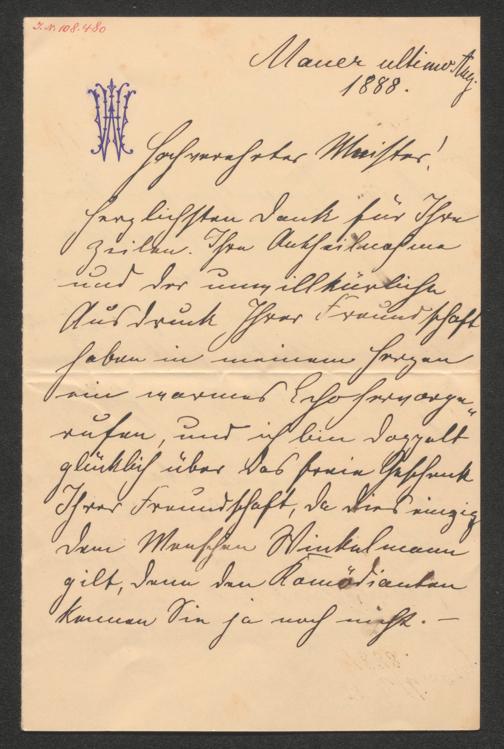 J.N. 108.480
Mauer ultimo Aug.
1888.
Hochverehrter Meister!
Herzlichsten Dank für Ihre
Zeilen. Ihre Antheilnahme
und der unwillkürliche
Ausdruck Ihrer Freundschaft
haben in meinem Herzen
ein warmes Echo hervorge„
rufen, und ich bin doppelt
glücklich über das freie Geschenk
Ihrer Freundschaft, da dies einzig
dem Menschen Winkelmann
gilt, denn den Komödianten
kennen Sie ja noch nicht. —